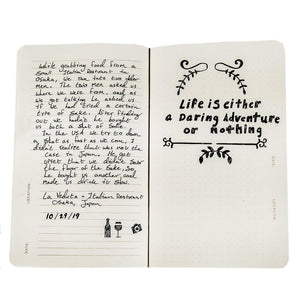 while grabbing food from a
Small Italian Restrant in
Osaka, we ran into two older
Men. The two men asked us
where we were from, and as
we got talking he asked us
if we had tried a certain
type of Sake. After finding
out we hadn't he bought
us both a shot of Sake.
In the USA we try to down
a shot as fast as we can, I
didn't realize that was not the
case in Japan. He got
upset that we didn't Savor
the flavor of the Sake, So,
he bought us another, and
made us drink it slow.
La Veduta - Italian Restrount
Osaka, Japan
10/29/19
LOCATION:
DATE:
Life is either
a Daring Adventure
or nothing
DATE:
LOCATION: